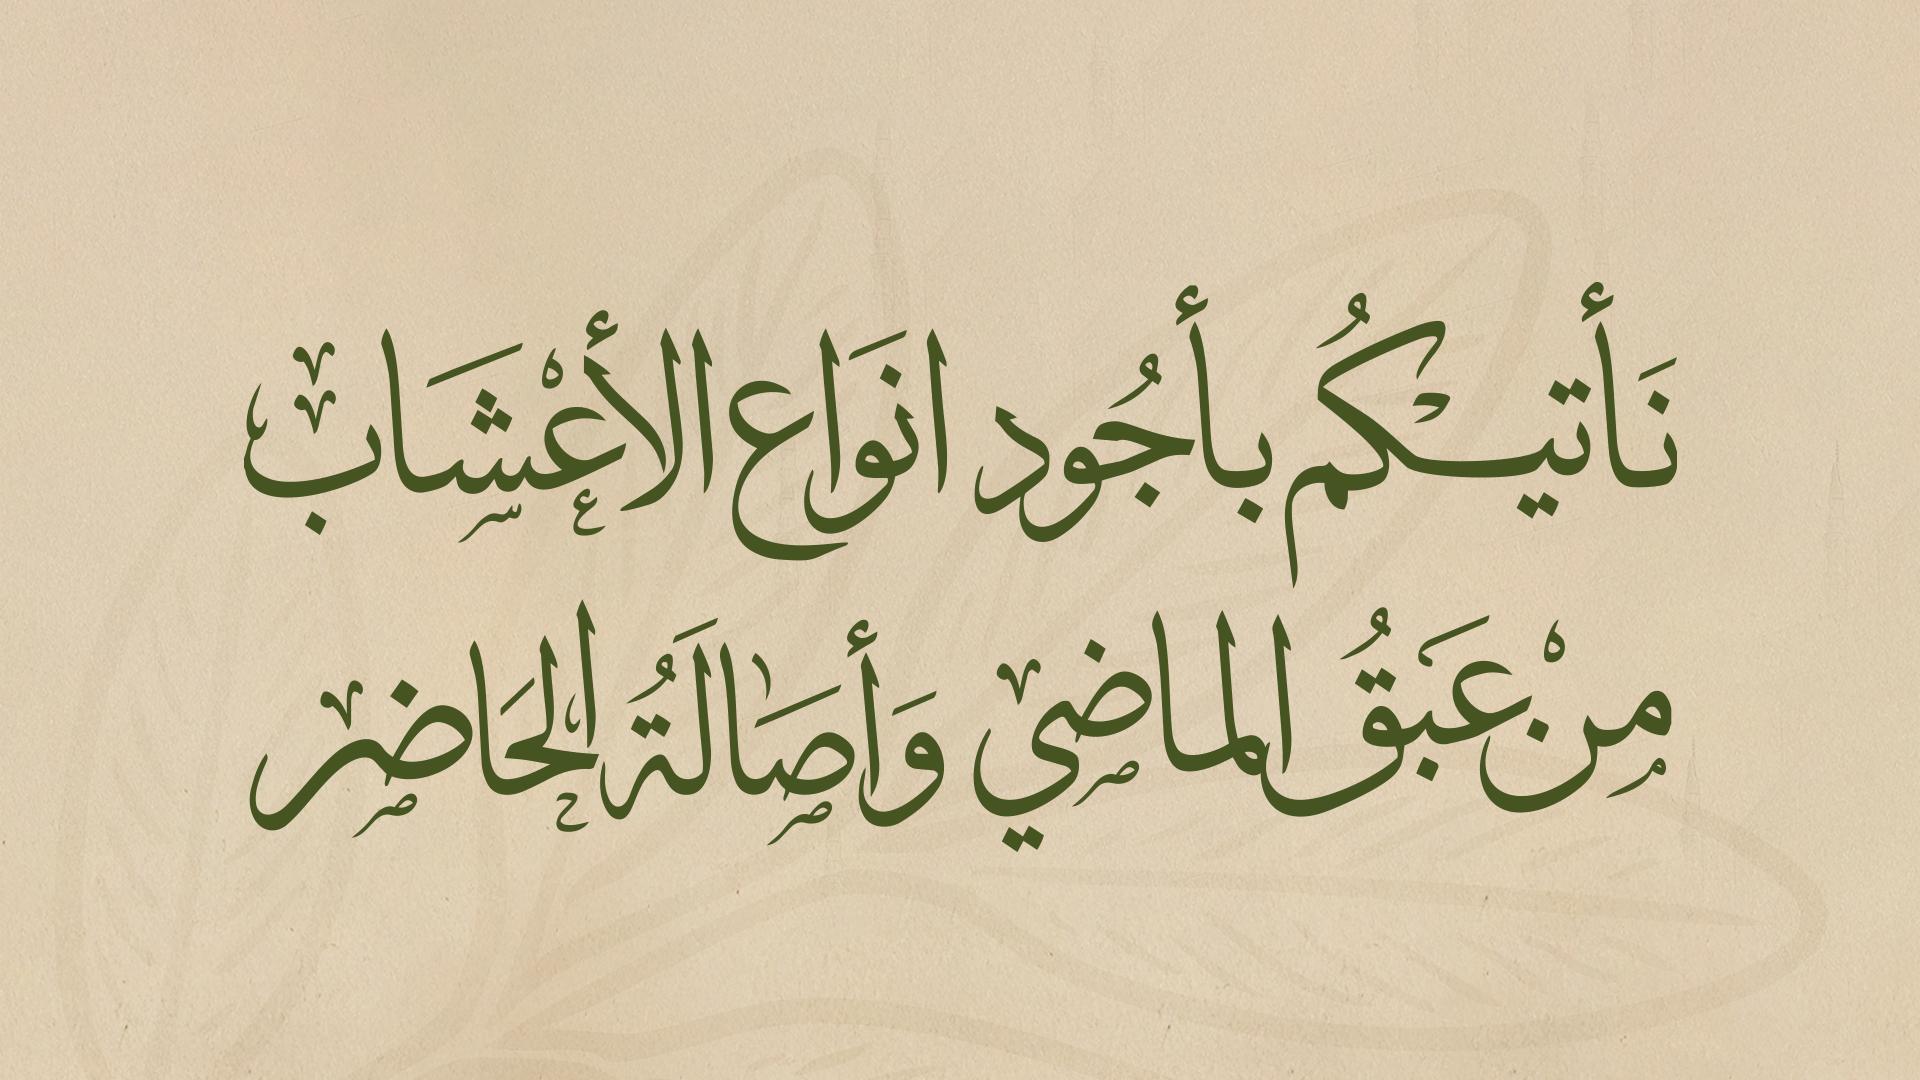 نَأتيـكُم بأجُود انوَاع الأعْشَاب
مِنْ عَبَقُ الماضي وَأصَالَةُ الحَاضر